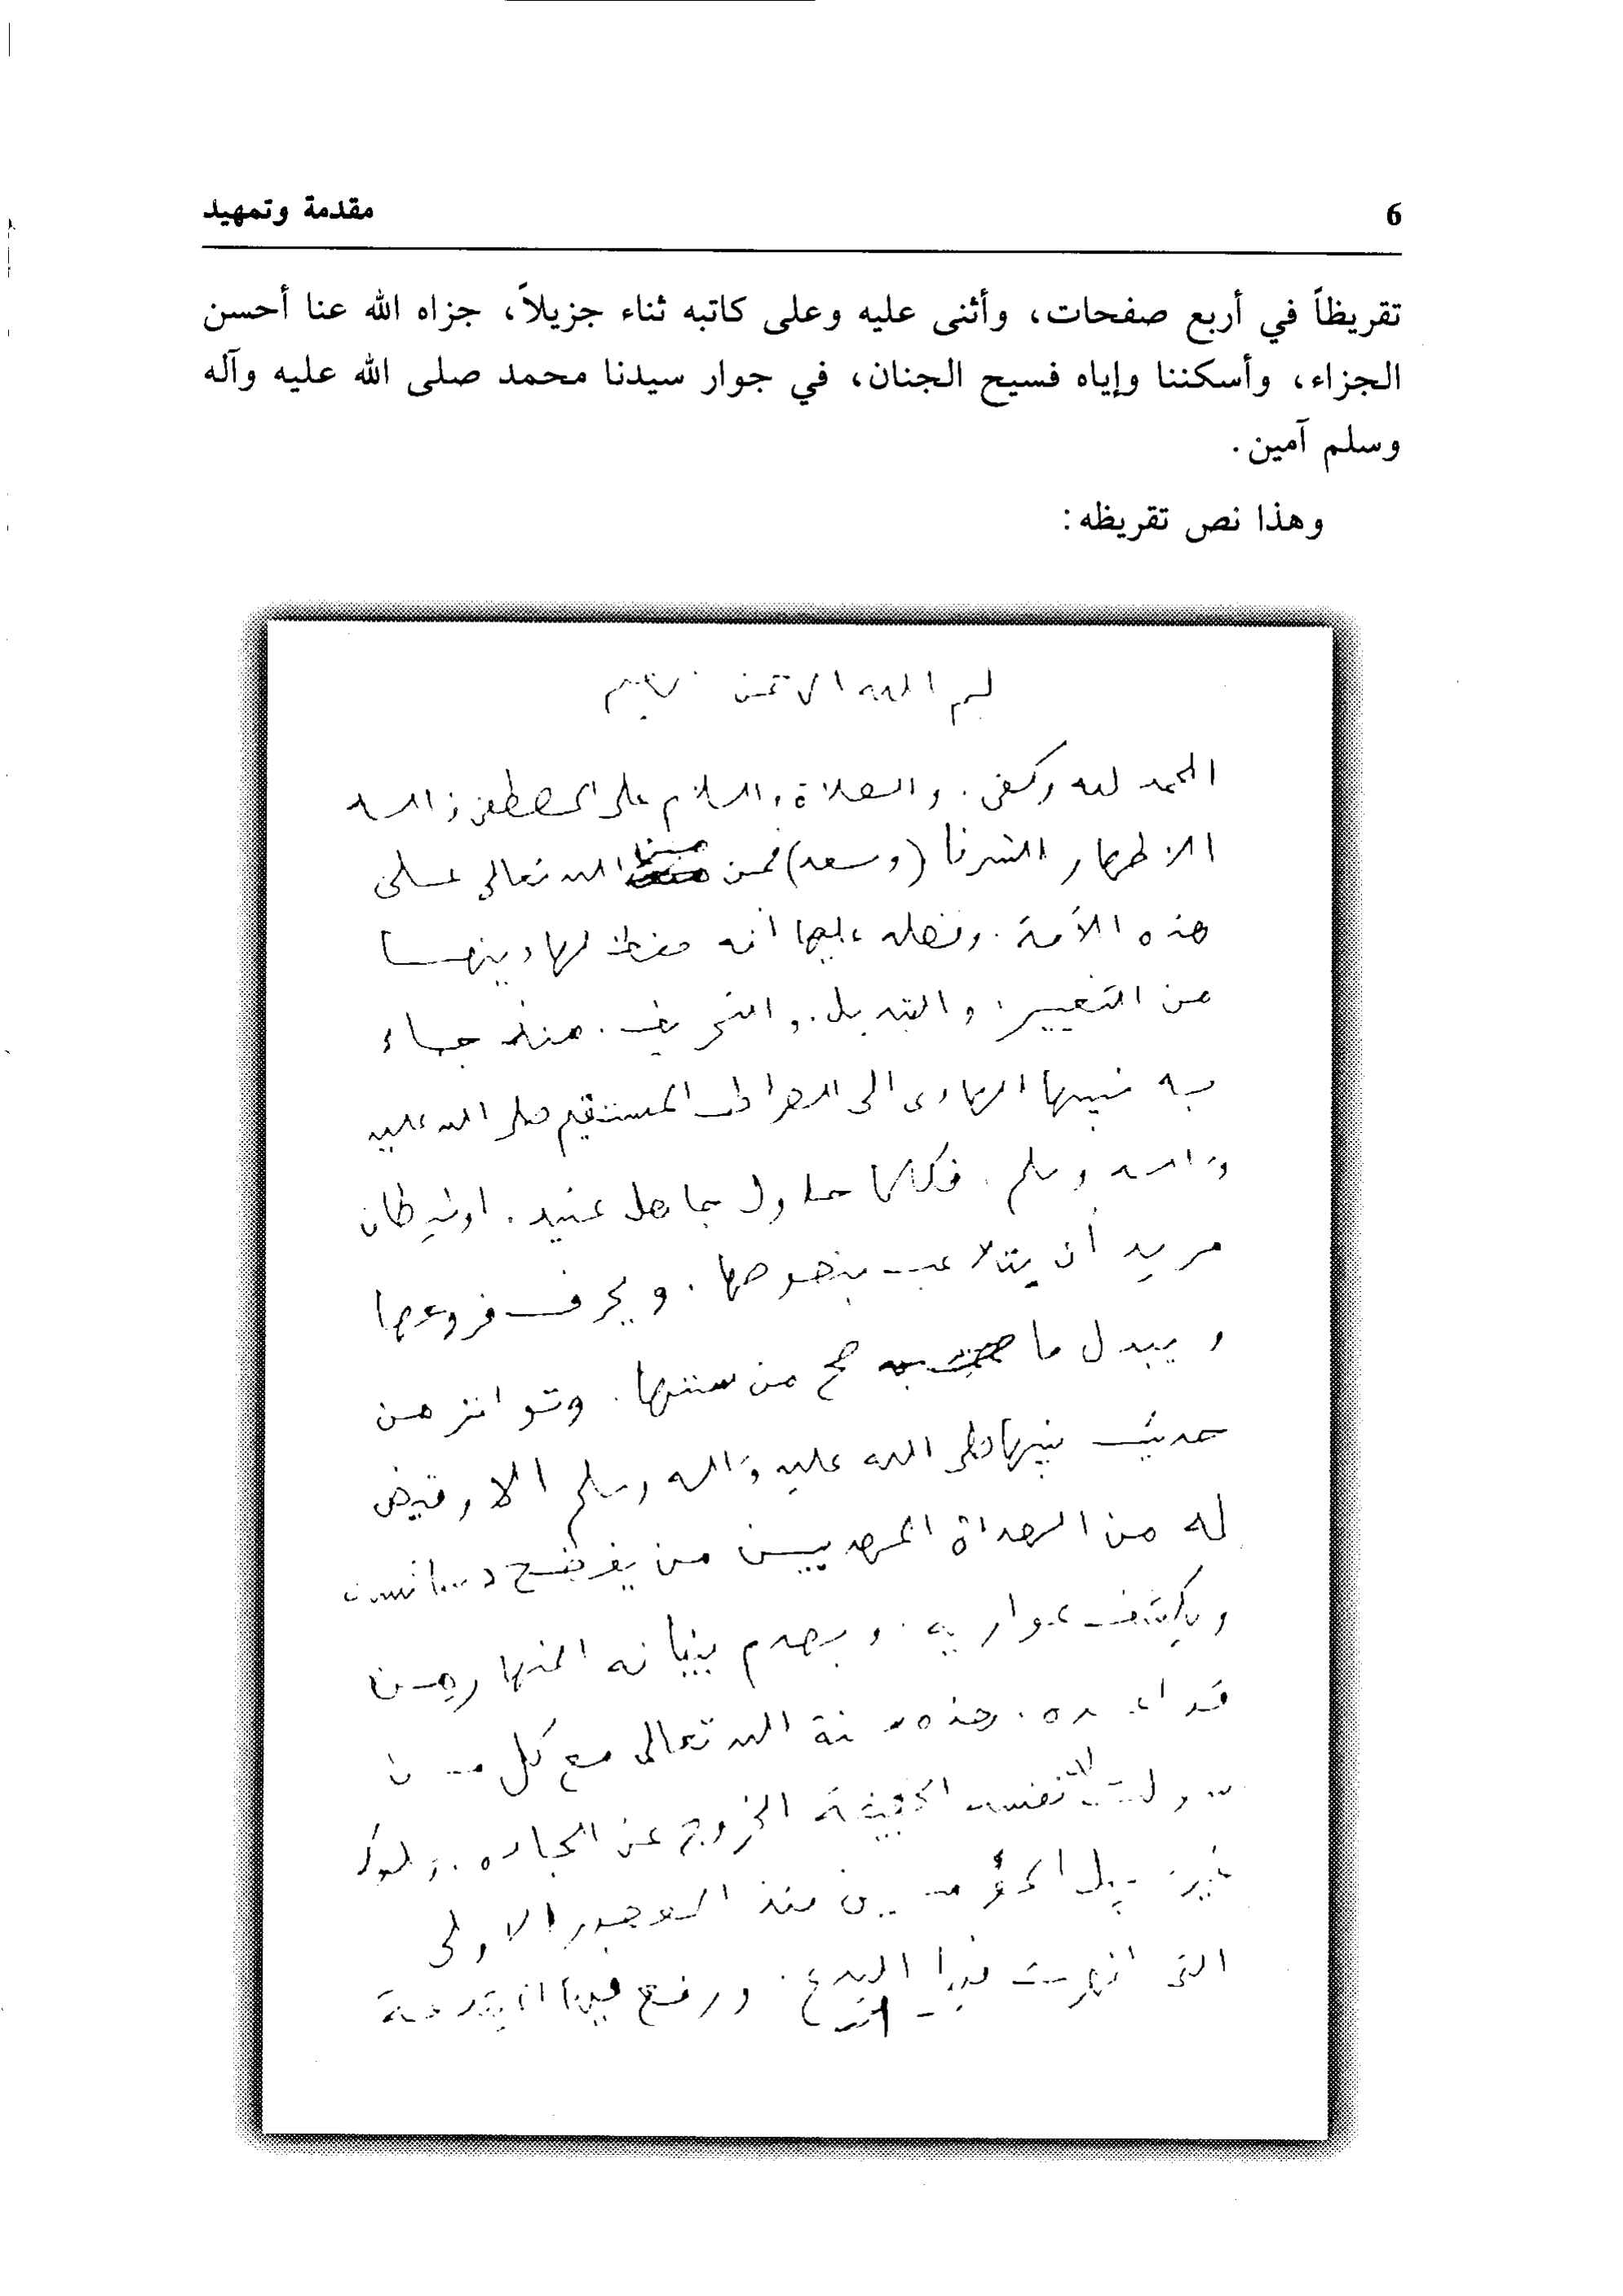 6
مقدمة وتمهيد
تقريظاً في أربع صفحات، وأثنى عليه وعلى كاتبه ثناء جزيلاً، جزاه الله عنا أحسن
الجزاء، وأسكننا وإياه فسيح الجنان، في جوار سيدنا محمد صلى الله عليه وآله
وسلم آمين.
وهذا نص تقريظه:
بسم الله الرحمن الرحيم
الحمد لله وكفى. والصلاة والسلام على المصطفى وآله
الاطهار الشرفا (وبعد) فمن الله تعالى على
هذه الأمة. وفضله عليها أنه حفظ لها دينها
من التغيير. والتبديل. والتحريف. منذ جاء
به نبيها الهادى الى الصراط المستقيم صلى الله عليه
وآله وسلم. فكلما حاول جاهل عنيد. او شيطان
مريد أن يتلاعب بنصوصها. ويحرف فروعها
ويبدل ما صح من سننها. وتواتر من
حديث نبيها صلى الله عليه وآله وسلم الا وقيض
له من الهداة المهديين من يفضح دسائسه
ويكشف عواريه. ويهدم بنيانه المنهار من
قواعده. وهذه سنة الله تعالى مع كل من
سولت له نفسه الخبيثة الخروج عن الجاده. وسلوك
غير سبيل المؤمنين منذ العصور الاولى
التى ظهرت فيها البدع. ورفع فيها المبتدعة